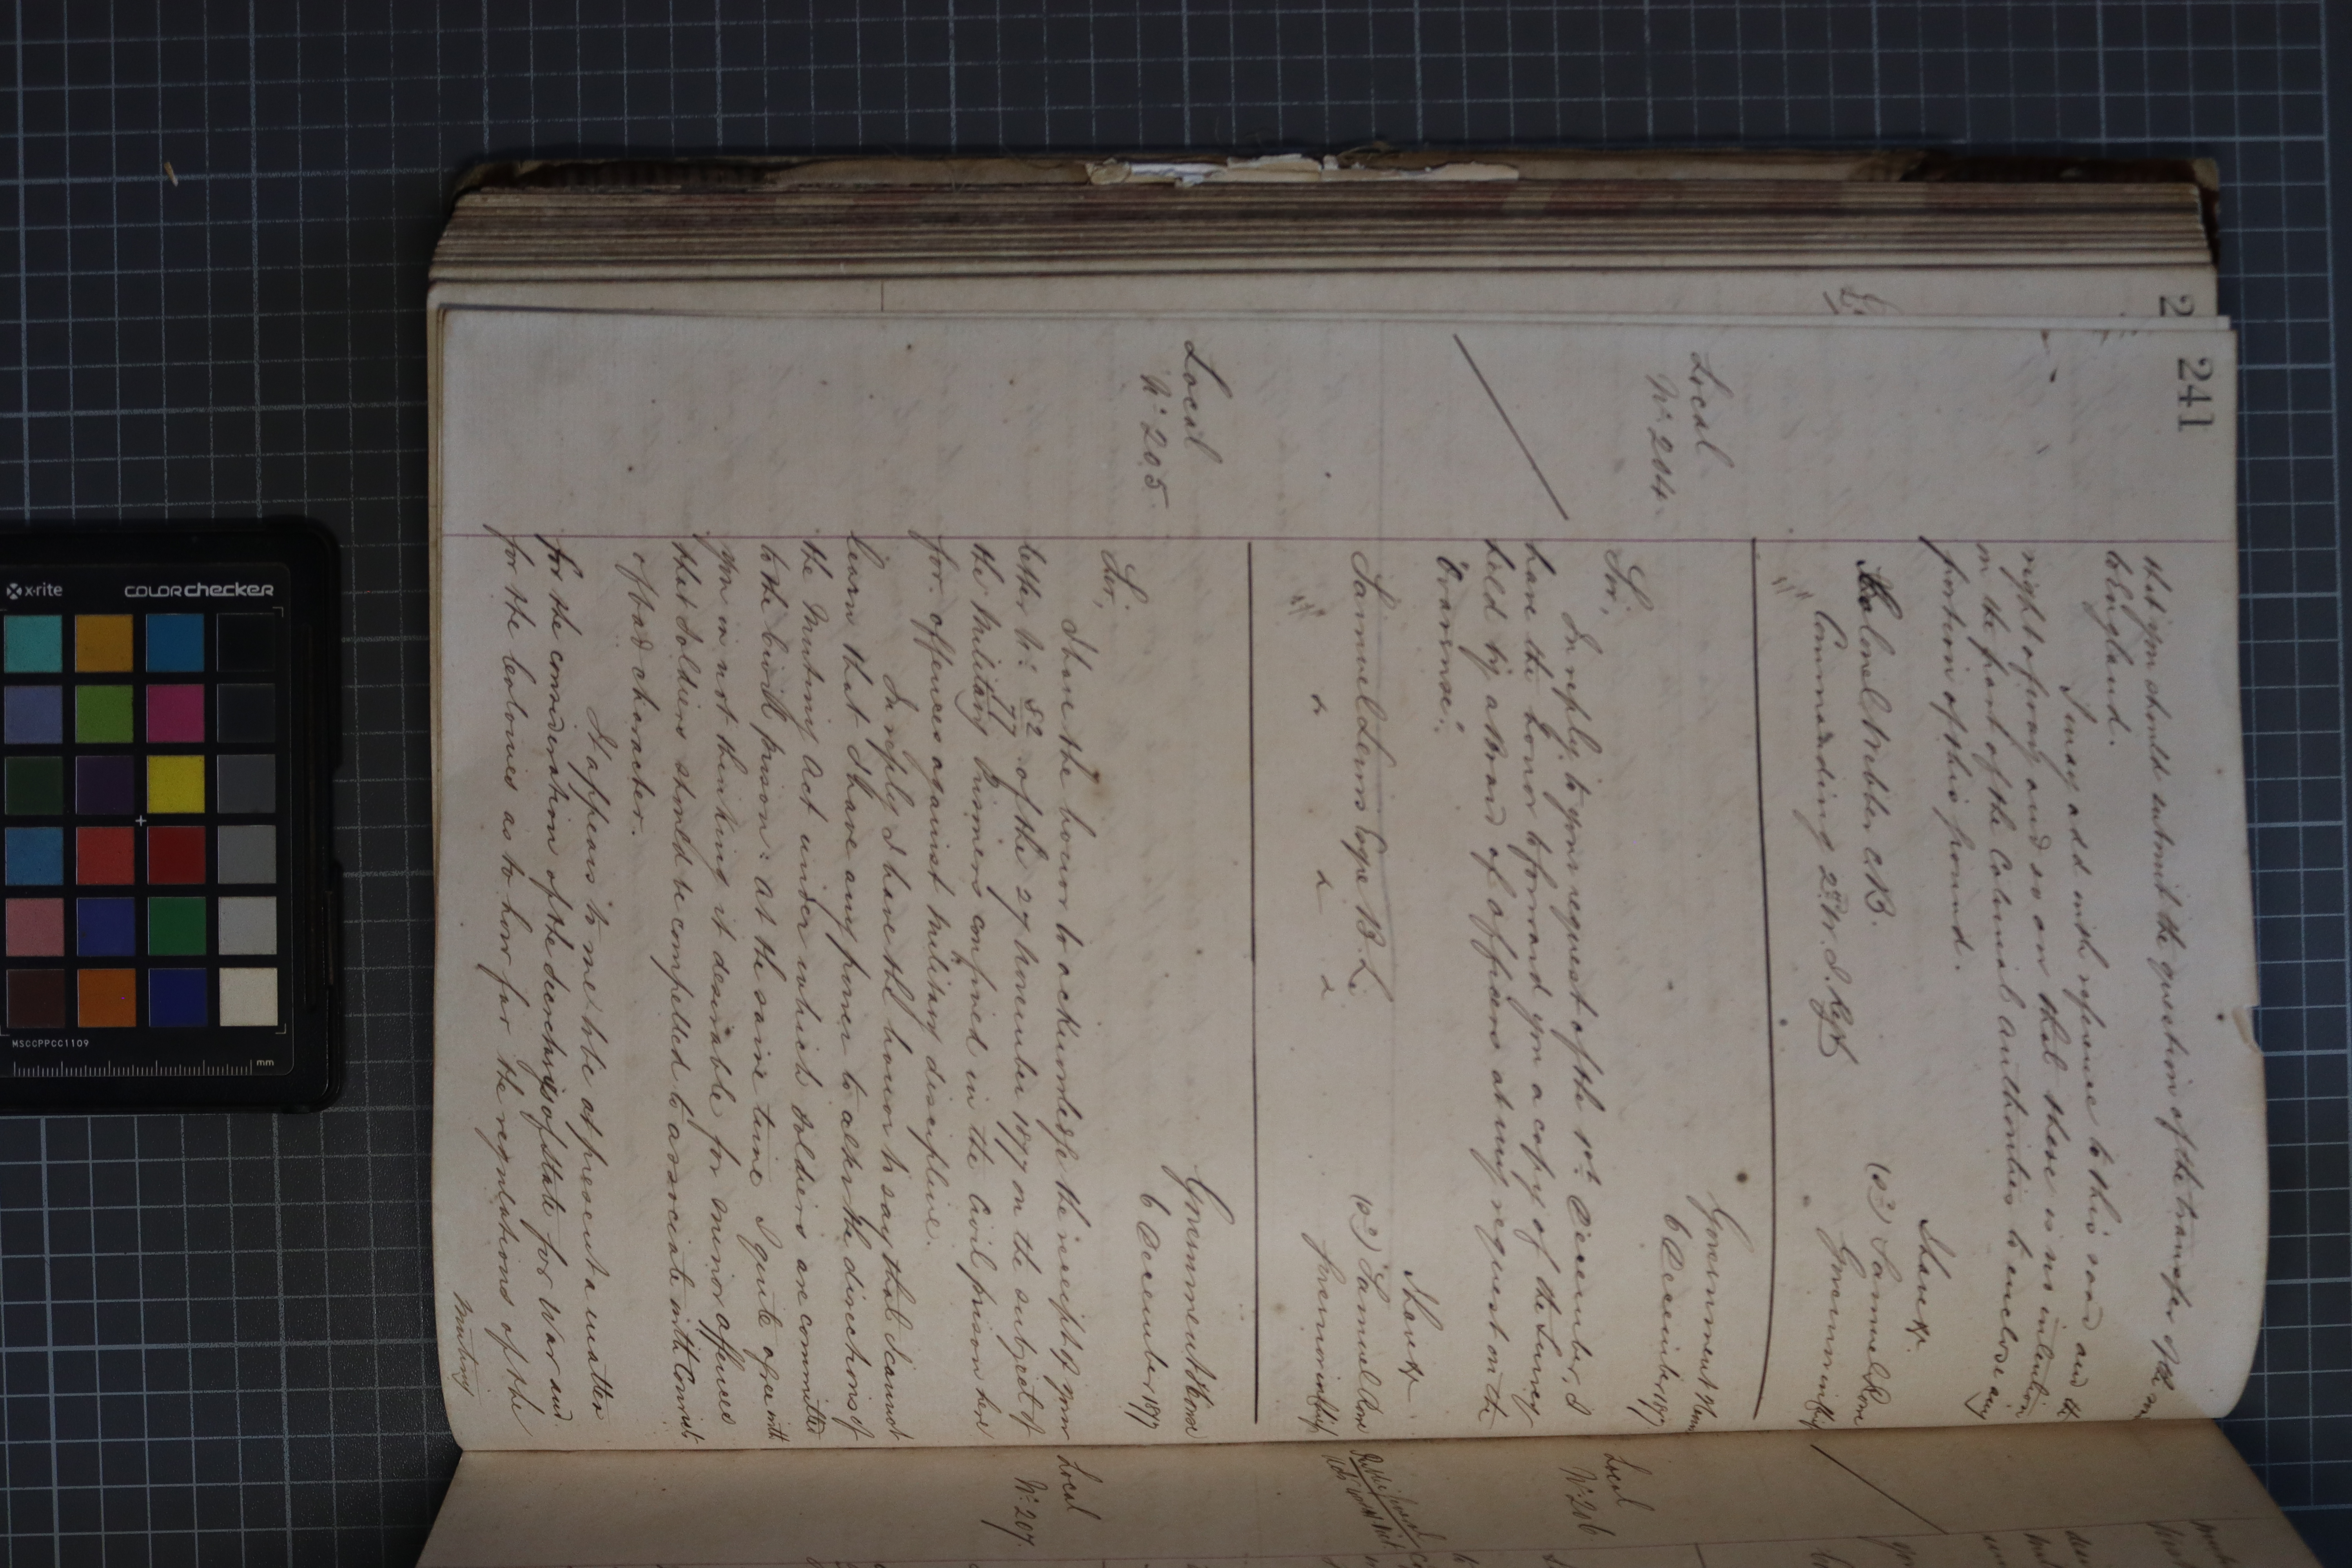 241
that you should submit the question of the transfer of the
to England.
I may add with reference to this road and the
right of way and so on that there is no intention
on the part of the Colonial Authorities to enclose any
portion of this ground.
I have &c
(sd) Samuel Rowe
Colonel Webber C.B.
Governor in Chief
Commanding 2nd W. I. Regt
Local
No. 204.
Government House
6 December 1877
Sir,
In reply to your request of the 1st December, I
have the honor to forward you a copy of the Survey
held by a Board of Officers at my request on the
I have &c
(sd) Samuel Rowe
Samuel Lewis Esqre B. L.
Governor in Chief
Local
No. 205
Government House
6 December 1877
Sir,
I have the honor to acknowledge the receipt of your
letter No. 52/77 of the 27 November 1877 on the subject of
the Military Prisoners confined in the Civil prison here
for offences against Military discipline.
In reply I have the honor to say that I cannot
learn that I have any power to alter the directions of
the Mutiny Act under which soldiers are committed
to the Civil prison: at the same time I quite agree with
you in not thinking it desirable for minor offences
that soldiers should be compelled to associate with Convicts
of bad character.
It appears to me to be at present a matter
for the consideration of the Secretarys of State for War and
for the Colonies as to how far the regulations of the
Mutiny
Local
No. 206
Local
No. 207.
x-rite
colorchecker
MSCCPPCC1109
mm